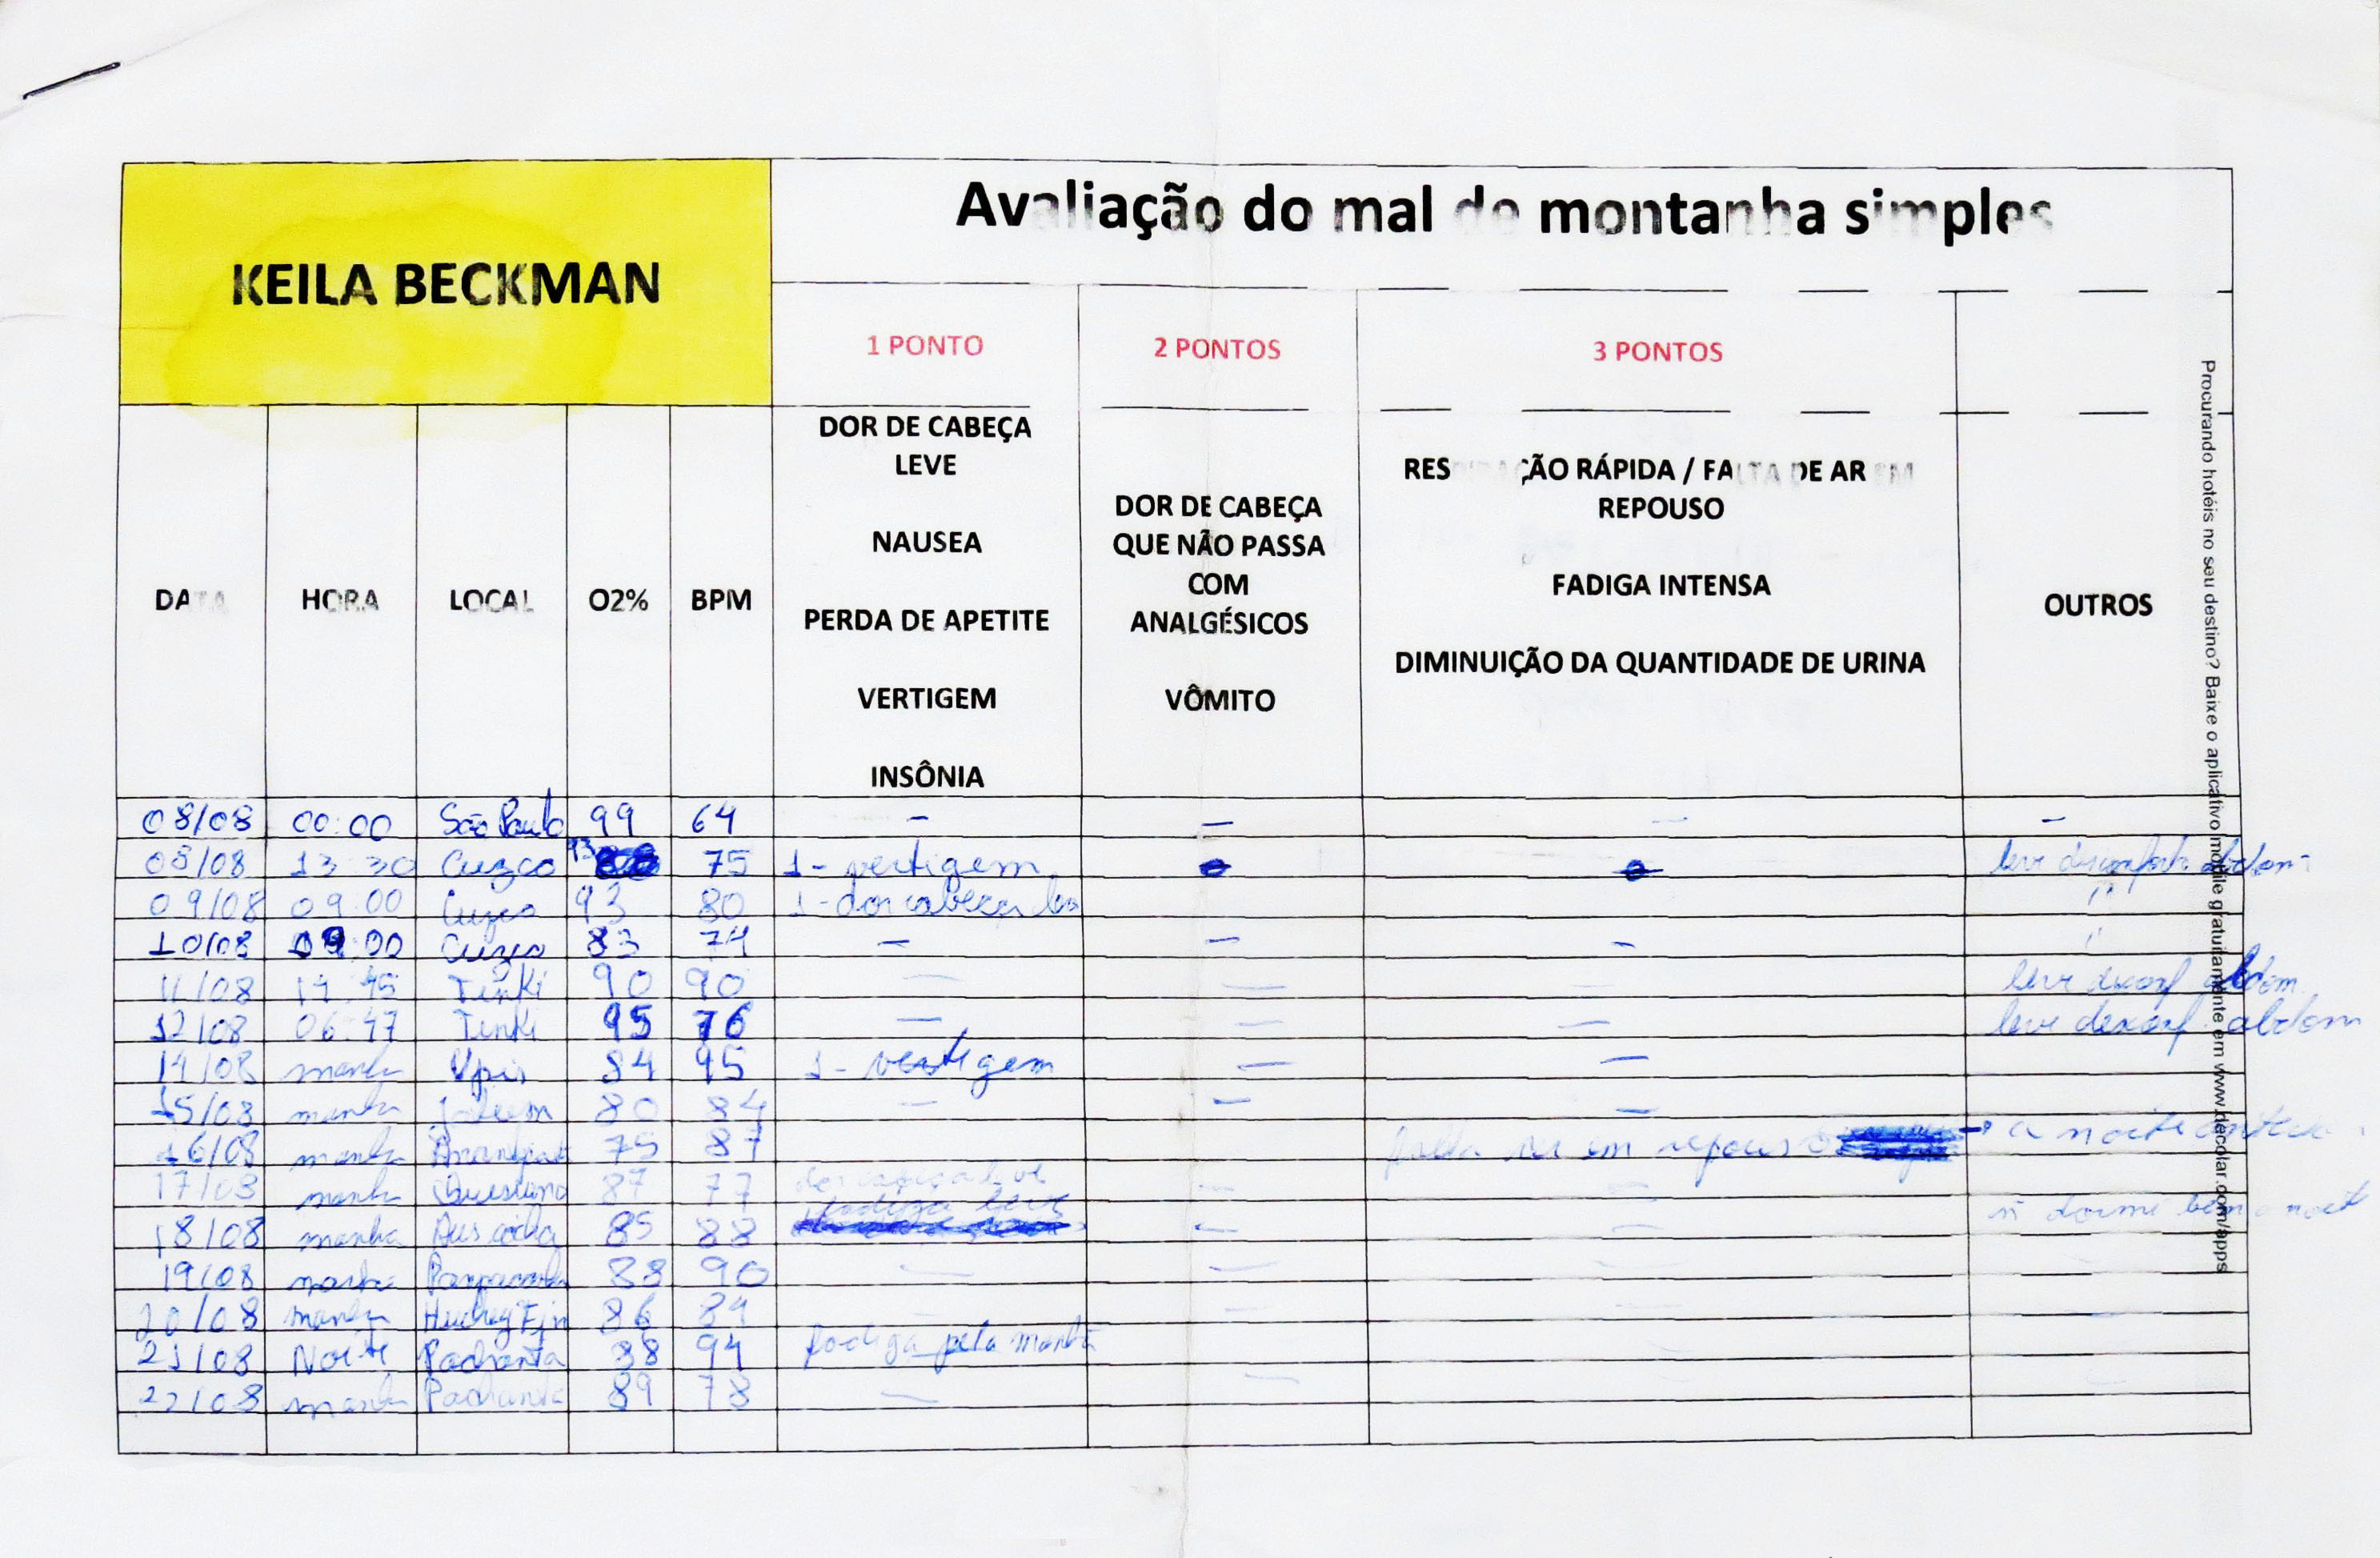 Avaliação do mal de montanha simples
KEILA BECKMAN
1 PONTO 2 PONTOS 3 PONTOS
DATA HORA LOCAL O2% BPM
DOR DE CABEÇA
LEVE
NAUSEA
PERDA DE APETITE
VERTIGEM
INSÔNIA
DOR DE CABEÇA
QUE NÃO PASSA
COM
ANALGÉSICOS
VÔMITO
RESPIRAÇÃO RÁPIDA / FALTA DE AR EM
REPOUSO
FADIGA INTENSA
DIMINUIÇÃO DA QUANTIDADE DE URINA
OUTROS
08/08 00:00 São Paulo 99 64 - - - -
08/08 13:30 Cuzco 93 75 1- vertigem - - leve
09/08 09:00 Cuzco 93 80 1- dor cabeça "
10/08 09:00 Cuzco 83 74 - - - "
11/08 Tinki 90 90 - - - leve abdom
12/08 06:47 Tinki 95 76 - - - leve abdom
14/08 manhã Upis 84 95 1- vertigem - -
15/08 manhã 80 84 - - -
16/08 manhã 75 87 falta ar em repouso → a noite
17/08 manhã 87 77 - -
18/08 manhã 85 88 fadiga leve - - ñ dormi bem a noit
19/08 manhã 88 90 - - - -
20/08 manhã 86 89 - - - -
21/08 Noite Pachanta 88 94 fadiga pela manhã
22/08 manhã Pachanta 89 78 - - - -
Procurando hotéis no seu destino? Baixe o aplicativo mobile gratuitamente em www.decolar.com/apps